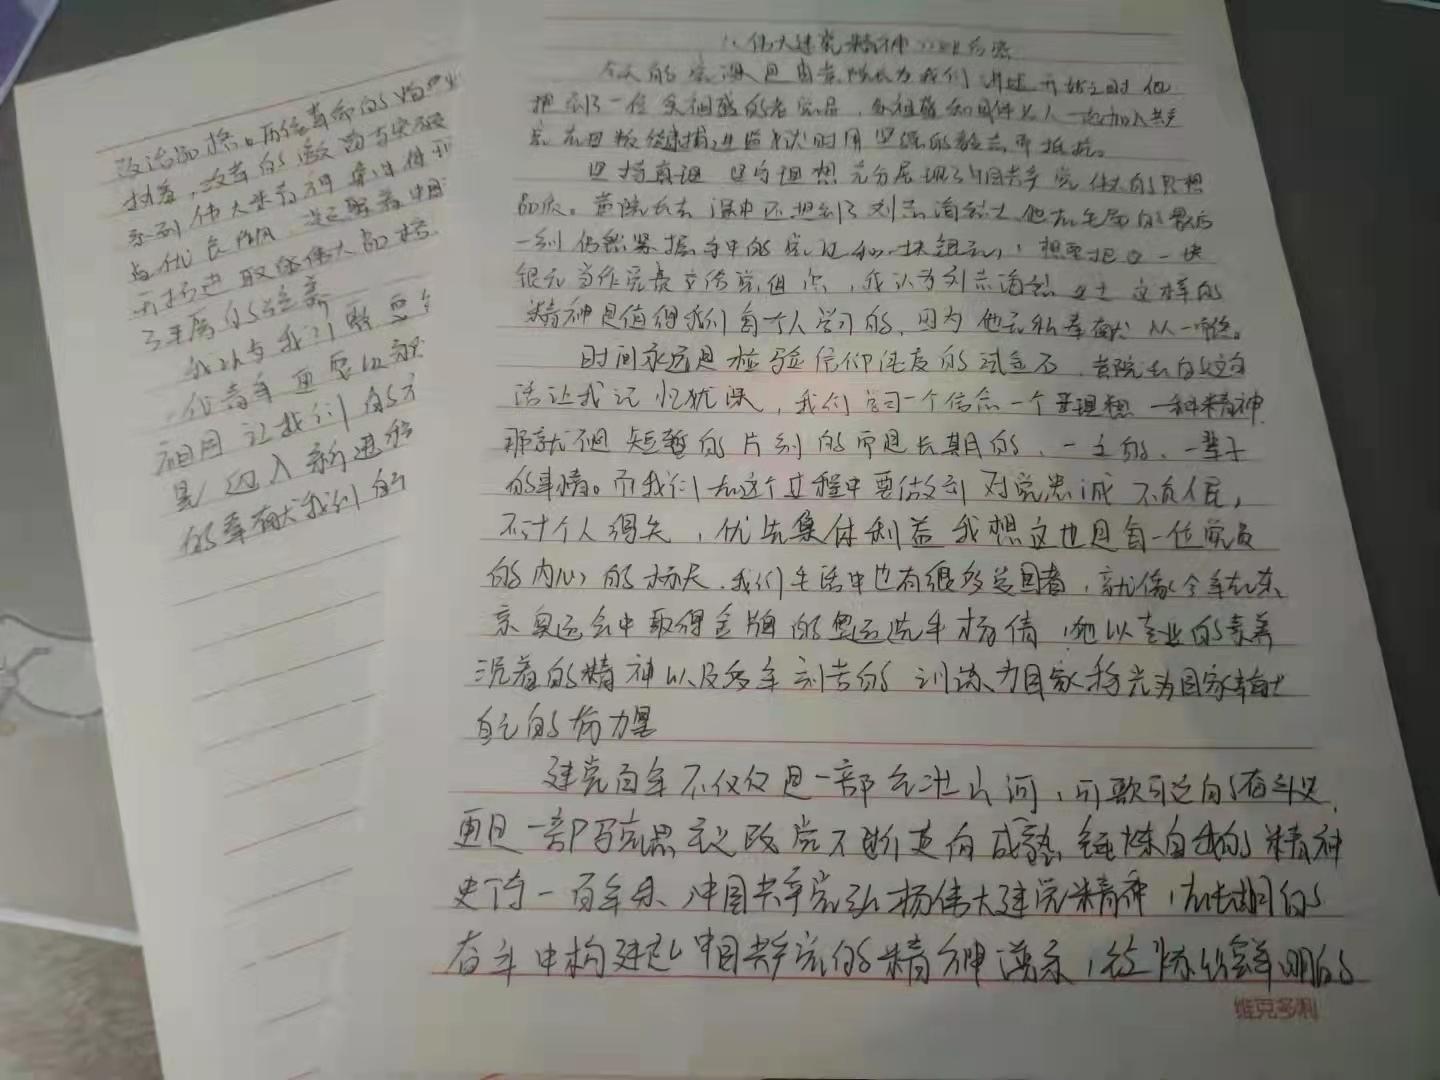 《伟大建党精神》观后感
今天的党课是由黄院长为我们讲述 开始之时 他
提到了一位 的老党员，
坚持真理 坚守理想 充分展现了中国共产党 伟大的思想
品质。黄院长在 课中还提到了刘志海烈士 他在生命的最后
一刻 仍然紧握手中的党 和一块银元，想要把这一块
银元当作党费交给党组织，我认为刘志海烈士 这样的
精神是值得我们每个人学习的，因为他无私奉献 从一而终。
时间永远是检验信仰纯度的试金石，黄院长的这句
话让我记忆犹深，我们学习一个信念一个理想 一种精神
那就不但短暂的片刻的而是长期的、一生的、一辈子
的事情。而我们在这个过程中要做到 对党忠诚 不负人民，
不计个人得失，优先集体利益 我想这也是每一位党员
的内心的标尺。我们生活中也有很多爱国者，就像今年在东
京奥运会中取得金牌的奥运选手杨倩，她以专业的素养
沉着的精神以及多年刻苦的 训练为国家移光为国家奉献
自己的份力量
建党百年不仅仅是一部气壮山河，可歌可泣的奋斗史，
更是一部马克思主义政党不断走向成熟 锤炼自我的精神
史诗 一百年来，中国共产党弘扬伟大建党精神，在长期的
奋斗中构建起中国共产党的精神谱系，锤炼出鲜明的
政治品格。历代革命的
执着，改革的
系列伟大
与优良作风
开拓进取 伟大品格
我认为我们
代青年更要
祖国 让我们的
迈入新进程
的奉献我们的
维克多利